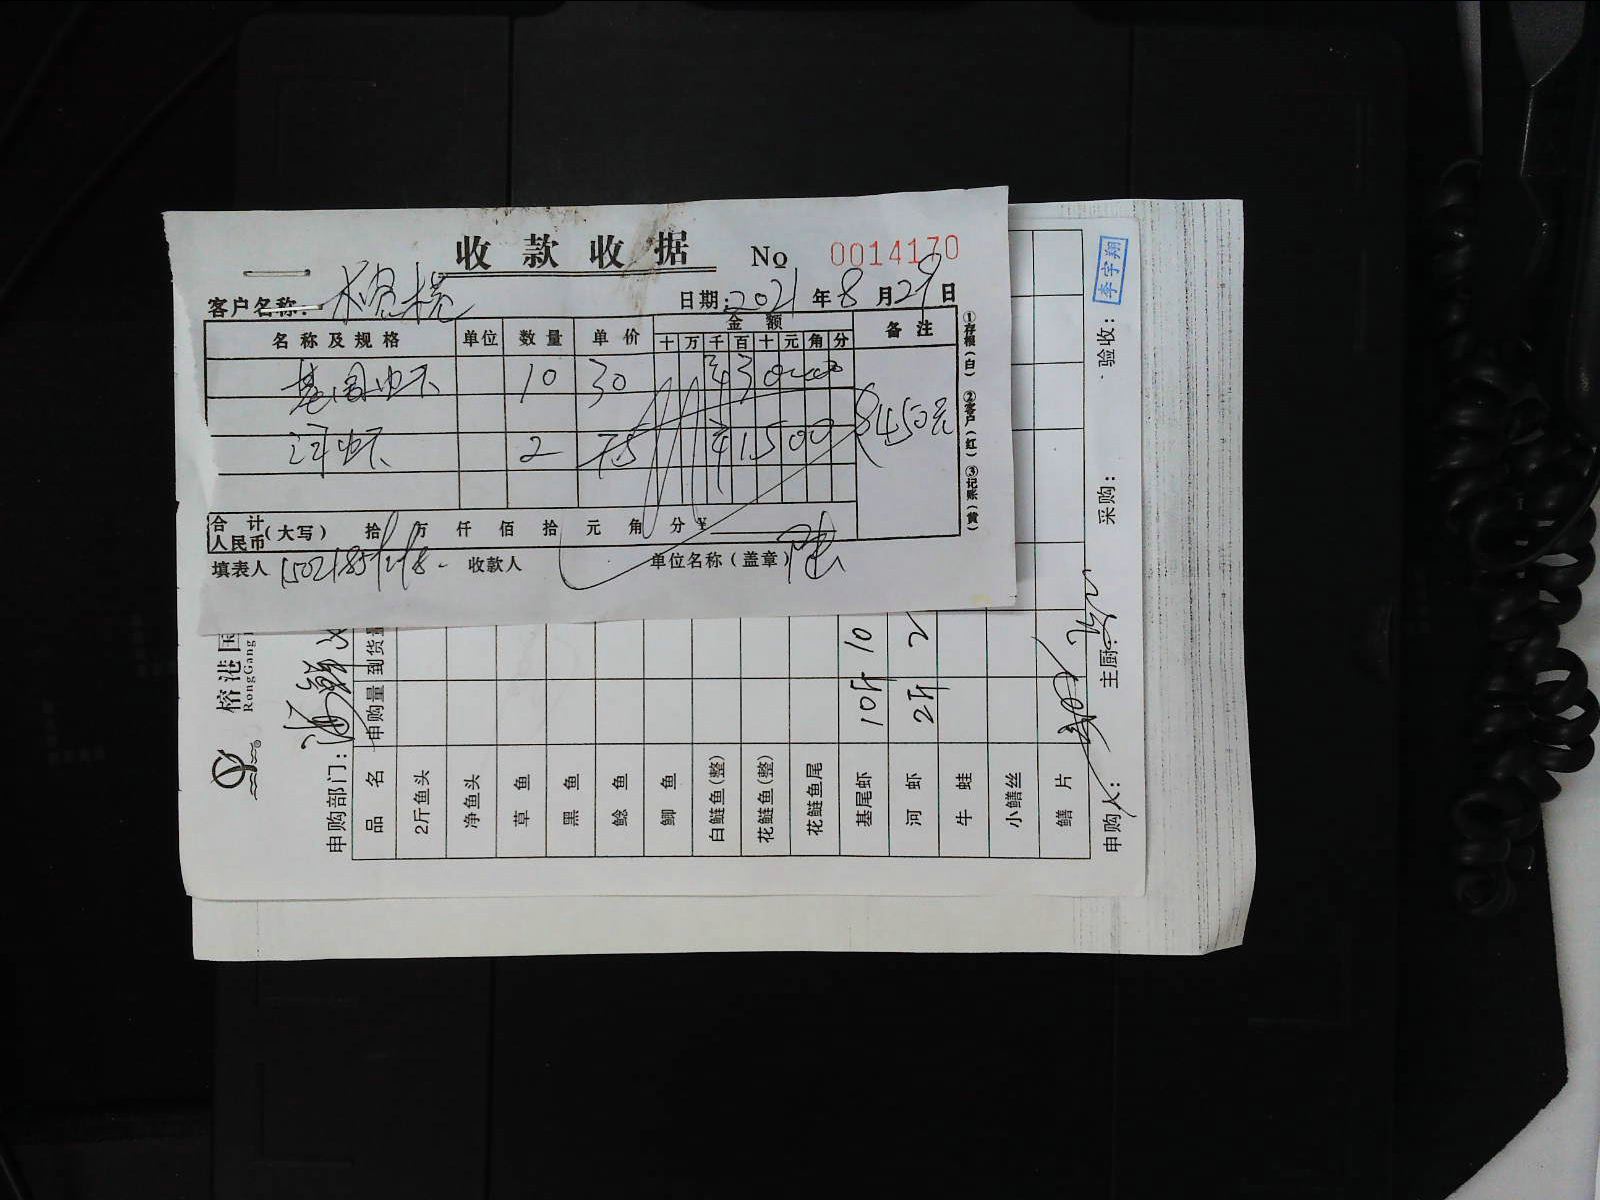 收款收据 No 0014170
客户名称: 榕港
日期: 2021 年 8 月 29 日
名称及规格 单位 数量 单价 金额 备注
十 万 千 百 十 元 角 分
基围虾 10 30 ¥30000
河虾 2 75 ¥15000
¥450元
合计人民币(大写) 拾 万 仟 佰 拾 元 角 分 ¥
填表人 收款人 单位名称(盖章)
①存根(白) ②客户(红) ③记账(黄)
榕港国
RongGang
申购部门: 海鲜
品名 申购量 到货量
2斤鱼头
净鱼头
草鱼
黑鱼
鲶鱼
鲫鱼
白鲢鱼(整)
花鲢鱼(整)
花鲢鱼尾
基尾虾 10斤 10
河虾 2斤 2
牛蛙
小鳝丝
鳝片
申购人: 主厨: 采购: 验收: 李宇翔